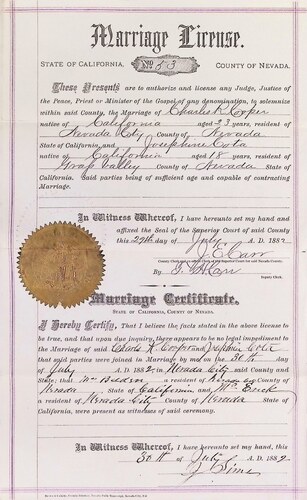 Marriage License.
STATE OF CALIFORNIA, No 53 COUNTY OF NEVADA.
These Presents are to authorize and license any Judge, Justice of
the Peace, Priest or Minister of the Gospel of any denomination, to solemnize
within said County, the Marriage of Charles R Cooper
native of California aged 23 years, resident of
Nevada City County of Nevada
State of California, and Josephine Cota
native of California aged 18 years, resident of
Grass Valley County of Nevada
State of California. Said parties being of sufficient age and capable of contracting
Marriage.
In Witness Whereof, I have hereunto set my hand and
affixed the Seal of the Superior Court of said County
this 29th day of July A.D. 1882
J. E. Carr
County Clerk
By G. D. Carr
Deputy Clerk.
Marriage Certificate.
STATE OF CALIFORNIA, COUNTY OF NEVADA.
I Hereby Certify, That I believe the facts stated in the above license to
be true, and that upon due inquiry, there appears to be no legal impediment to
the Marriage of said Charles R Cooper and Josephine Cota
that said parties were joined in Marriage by me on the 30th day
of July A.D. 1882 in Nevada City said County and
State; that a resident of County of
Nevada, State of California and
a resident of Nevada City County of Nevada State of
California, were present as witnesses of said ceremony.
In Witness Whereof, I have hereunto set my hand, this
30th of July A.D. 1882
J. Sims